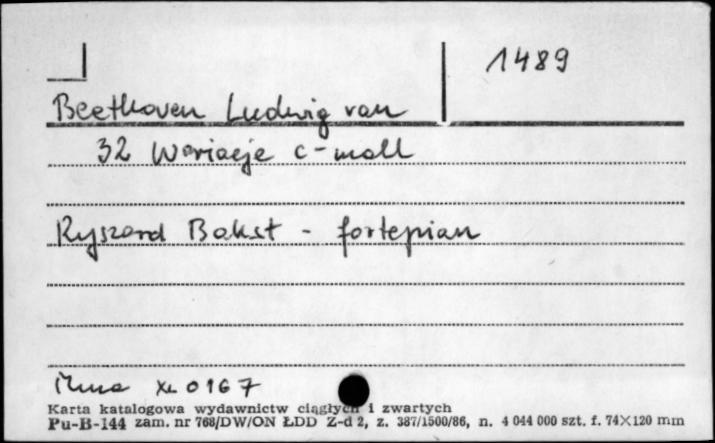 1489
Beethoven Ludwig van
32 Wariacje c-moll
Ryszard Bakst - fortepian
Muza XL 0167
Karta katalogowa wydawnictw ciągłych i zwartych
Pu-B-144 zam. nr 768/DW/ON ŁDD Z-d 2, z. 387/1500/86, n. 4 044 000 szt. f. 74×120 mm